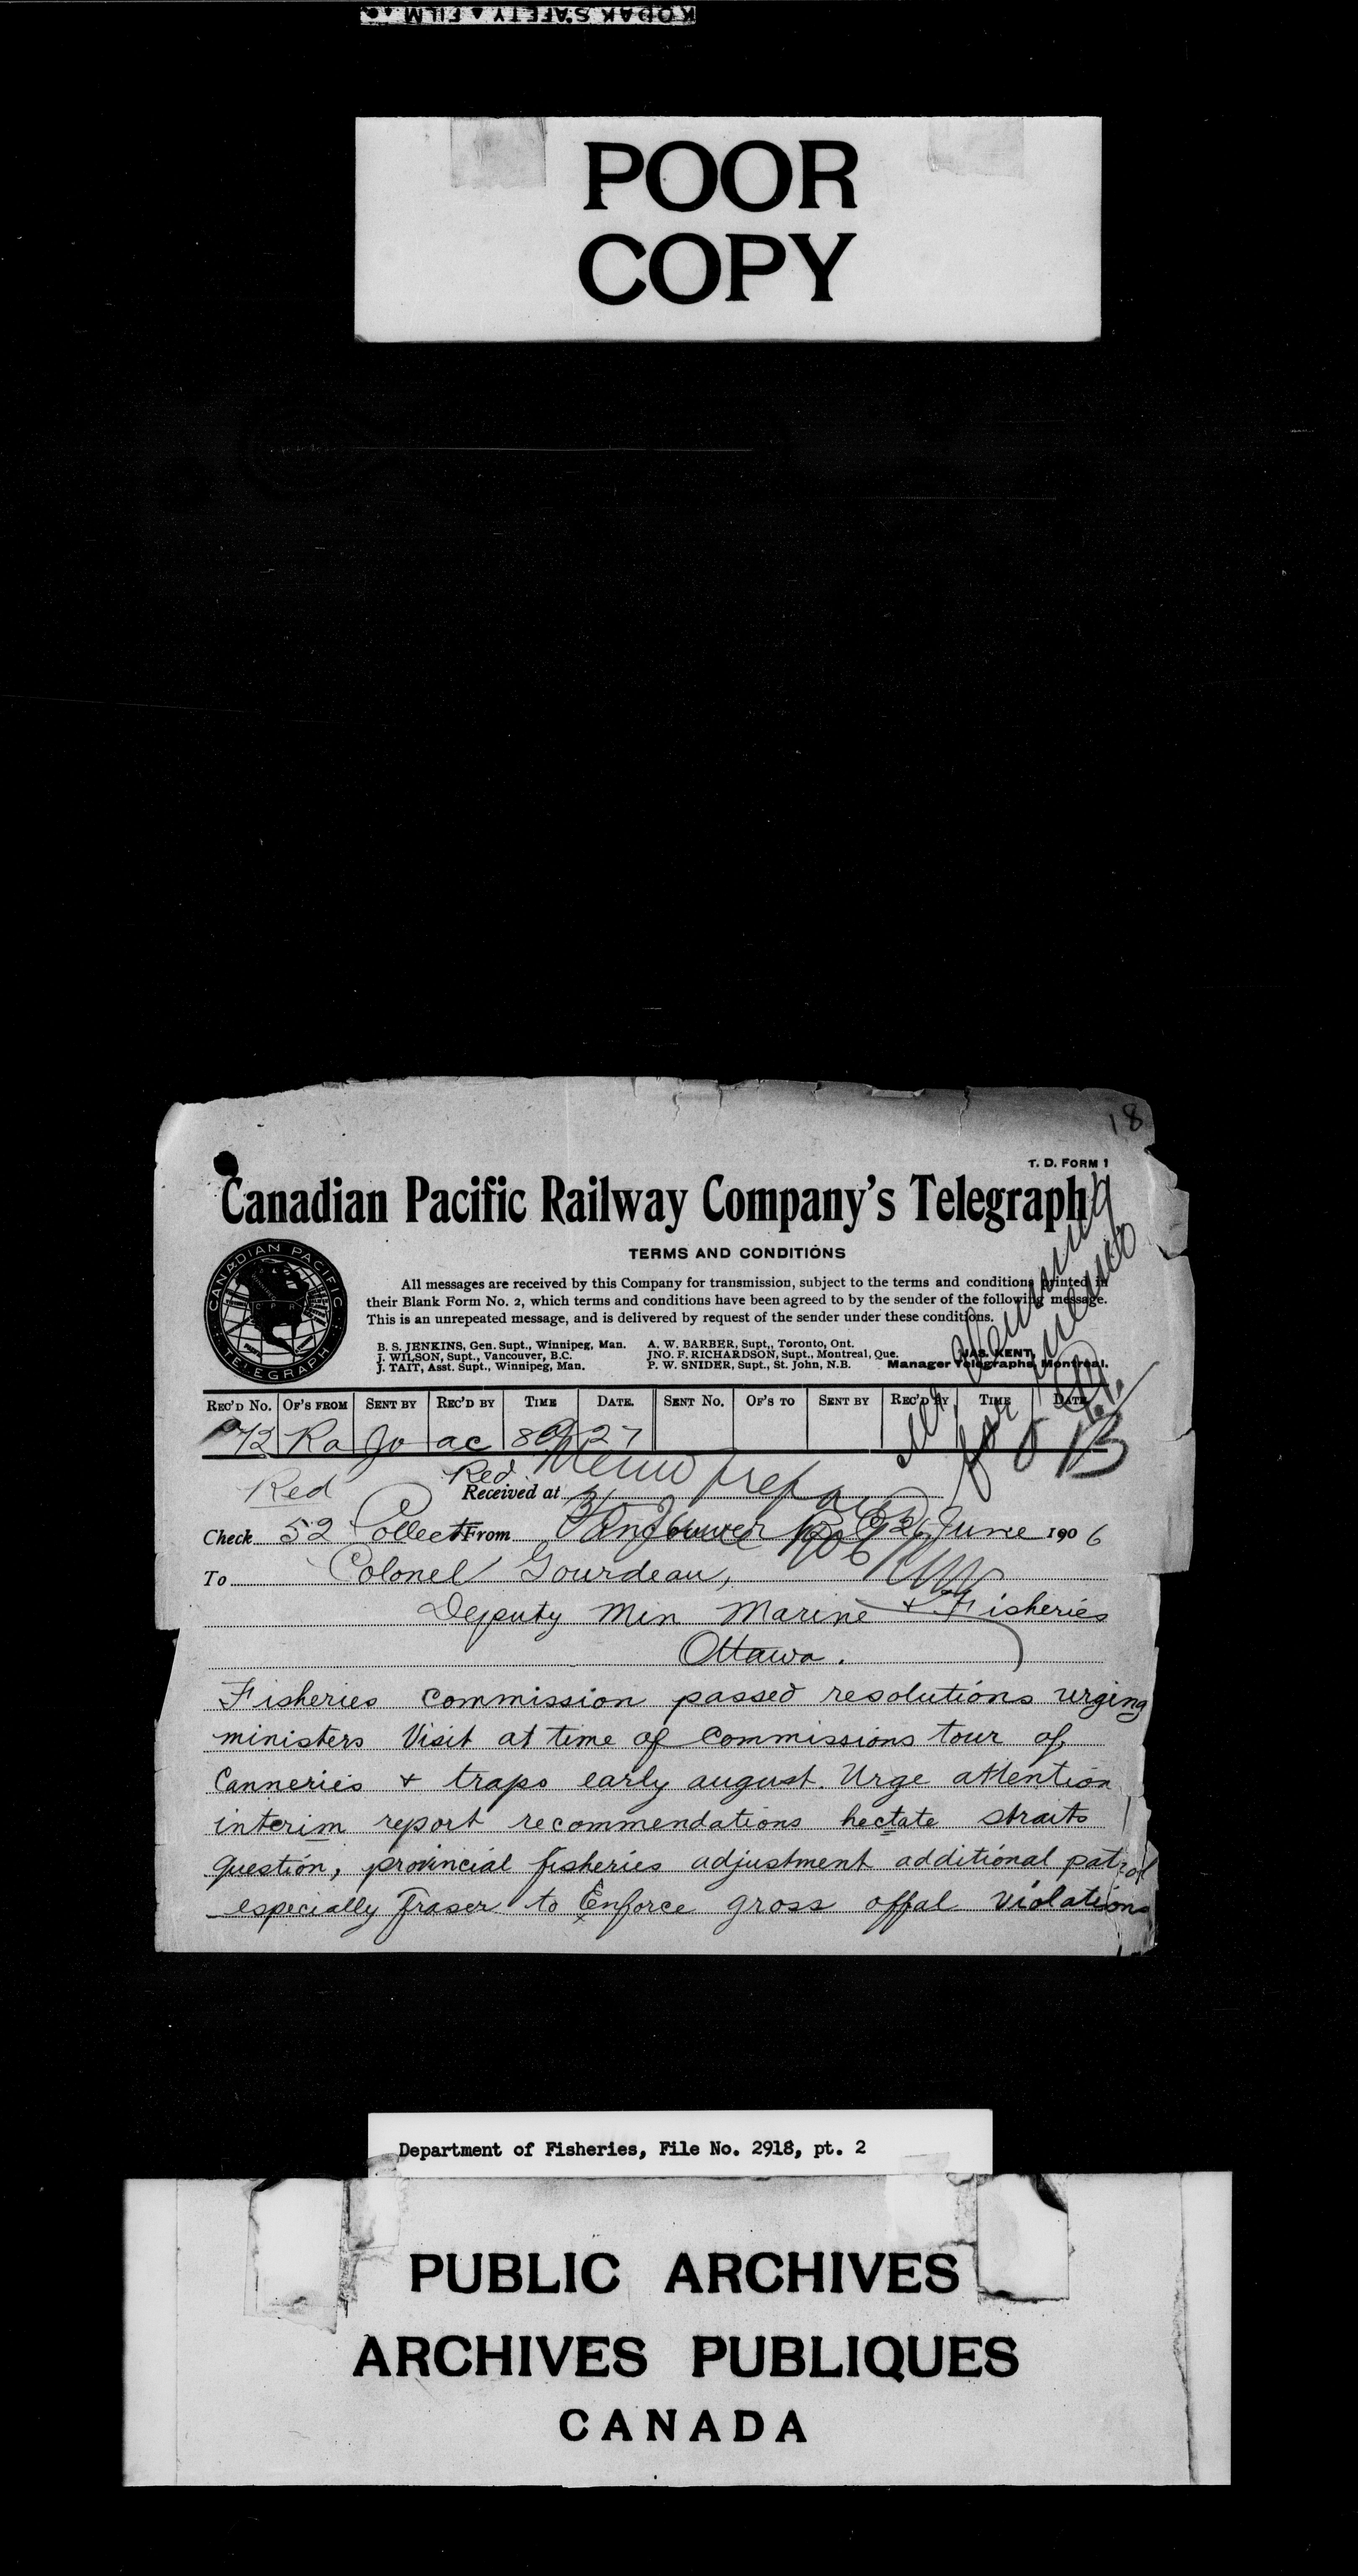 KODAK SAFETY FILM
POOR
COPY
18
T. D. FORM 1
Canadian Pacific Railway Company's Telegraph
TERMS AND CONDITIONS
CANADIAN PACIFIC
TELEGRAPH
All messages are received by this Company for transmission, subject to the terms and conditions printed in
their Blank Form No. 2, which terms and conditions have been agreed to by the sender of the following message.
This is an unrepeated message, and is delivered by request of the sender under these conditions.
B. S. JENKINS, Gen. Supt., Winnipeg, Man. A. W. BARBER, Supt., Toronto, Ont.
J. WILSON, Supt., Vancouver, B.C. JNO. F. RICHARDSON, Supt., Montreal, Que. JAS. KENT,
J. TAIT, Asst. Supt., Winnipeg, Man. P. W. SNIDER, Supt., St. John, N.B. Manager Telegraphs, Montreal.
REC'D No. OF'S FROM SENT BY REC'D BY TIME DATE. SENT No. OF'S TO SENT BY REC'D BY TIME DATE
72 Ra Jo ac 27
for
Red Red. Memo
Received at
Check 52 Collect From Vancouver BC 26 June 1906
To Colonel Gourdeau,
Deputy Min Marine & Fisheries
Ottawa.
Fisheries Commission passed resolutions urging
ministers Visit at time of Commissions tour of
Canneries & traps early august. Urge attention
interim report recommendations hectate straits
question, provincial fisheries adjustment additional patrol
especially Fraser to Enforce gross offal violations
Department of Fisheries, File No. 2918, pt. 2
PUBLIC ARCHIVES
ARCHIVES PUBLIQUES
CANADA